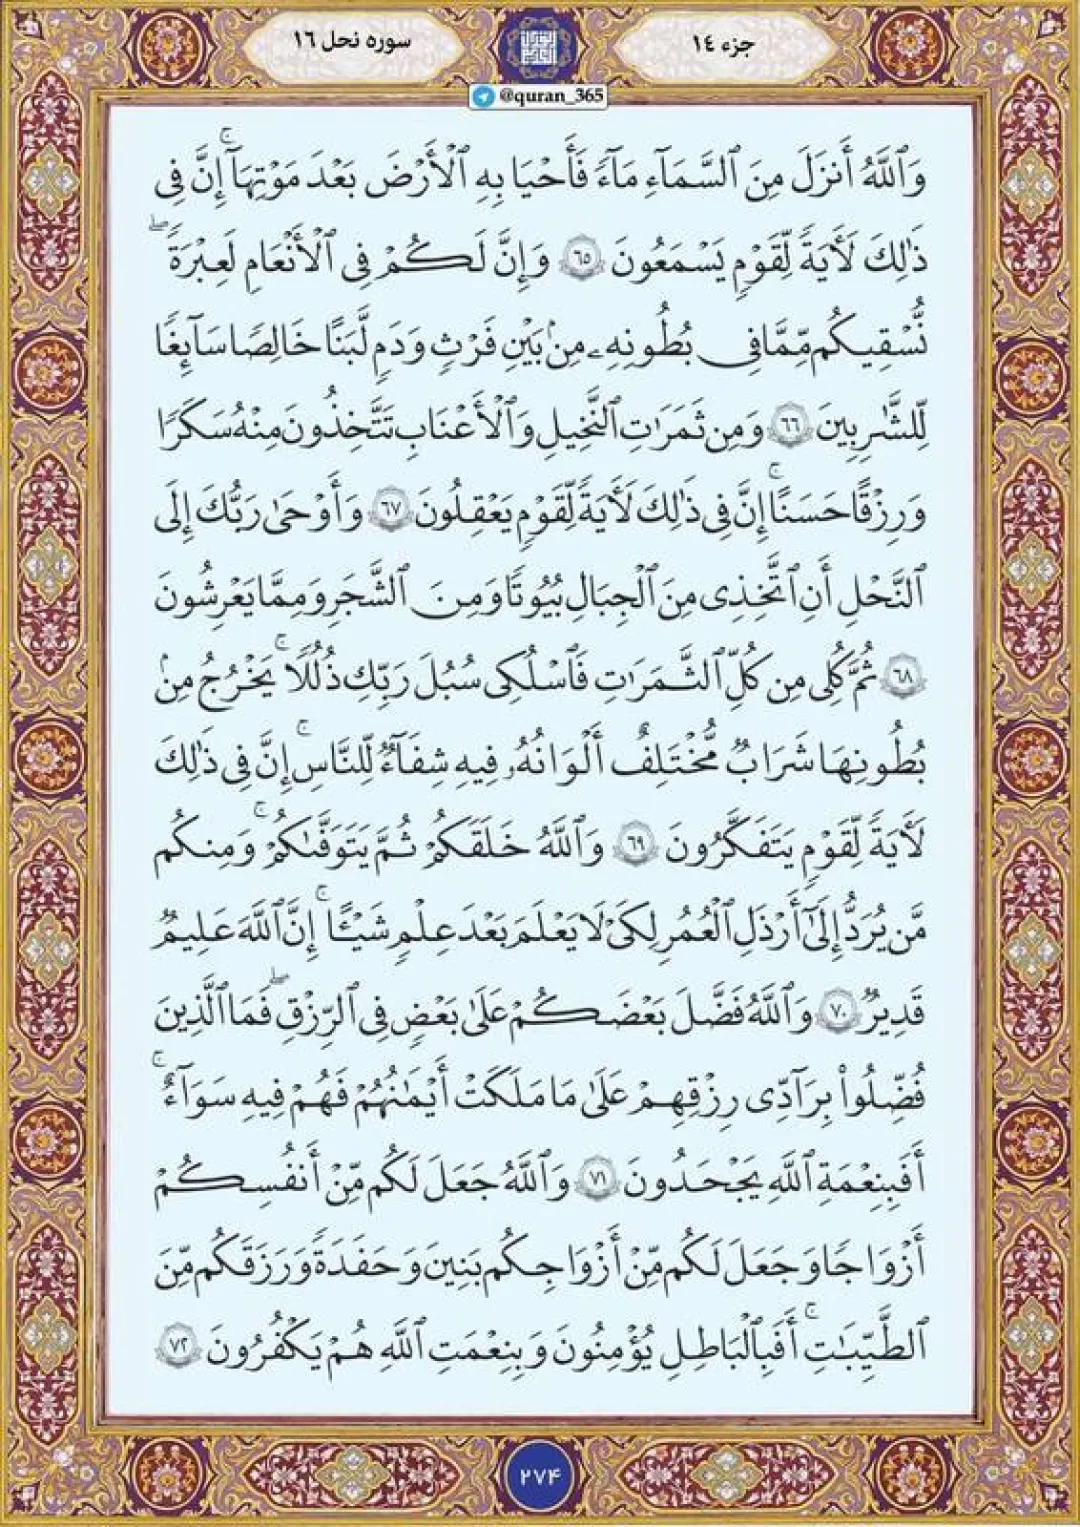 جزء ١٤
سوره نحل ١٦
@quran_365
وَٱللَّهُ أَنزَلَ مِنَ ٱلسَّمَآءِ مَآءً فَأَحْيَا بِهِ ٱلْأَرْضَ بَعْدَ مَوْتِهَآ ۚ إِنَّ فِى
ذَٰلِكَ لَأَيَةً لِّقَوْمٍ يَسْمَعُونَ ٦٥ وَإِنَّ لَكُمْ فِى ٱلْأَنْعَامِ لَعِبْرَةً ۖ
نُّسْقِيكُم مِّمَّا فِى بُطُونِهِۦ مِنۢ بَيْنِ فَرْثٍ وَدَمٍ لَّبَنًا خَالِصًا سَآئِغًا
لِّلشَّٰرِبِينَ ٦٦ وَمِن ثَمَرَٰتِ ٱلنَّخِيلِ وَٱلْأَعْنَابِ تَتَّخِذُونَ مِنْهُ سَكَرًا
وَرِزْقًا حَسَنًا ۚ إِنَّ فِى ذَٰلِكَ لَأَيَةً لِّقَوْمٍ يَعْقِلُونَ ٦٧ وَأَوْحَىٰ رَبُّكَ إِلَى
ٱلنَّحْلِ أَنِ ٱتَّخِذِى مِنَ ٱلْجِبَالِ بُيُوتًا وَمِنَ ٱلشَّجَرِ وَمِمَّا يَعْرِشُونَ
٦٨ ثُمَّ كُلِى مِن كُلِّ ٱلثَّمَرَٰتِ فَٱسْلُكِى سُبُلَ رَبِّكِ ذُلُلًا ۚ يَخْرُجُ مِنۢ
بُطُونِهَا شَرَابٌ مُّخْتَلِفٌ أَلْوَانُهُۥ فِيهِ شِفَآءٌ لِّلنَّاسِ ۚ إِنَّ فِى ذَٰلِكَ
لَأَيَةً لِّقَوْمٍ يَتَفَكَّرُونَ ٦٩ وَٱللَّهُ خَلَقَكُمْ ثُمَّ يَتَوَفَّىٰكُمْ ۚ وَمِنكُم
مَّن يُرَدُّ إِلَىٰٓ أَرْذَلِ ٱلْعُمُرِ لِكَىْ لَا يَعْلَمَ بَعْدَ عِلْمٍ شَيْـًٔا ۚ إِنَّ ٱللَّهَ عَلِيمٌ
قَدِيرٌ ٧٠ وَٱللَّهُ فَضَّلَ بَعْضَكُمْ عَلَىٰ بَعْضٍ فِى ٱلرِّزْقِ ۖ فَمَا ٱلَّذِينَ
فُضِّلُوا۟ بِرَآدِّى رِزْقِهِمْ عَلَىٰ مَا مَلَكَتْ أَيْمَٰنُهُمْ فَهُمْ فِيهِ سَوَآءٌ ۚ
أَفَبِنِعْمَةِ ٱللَّهِ يَجْحَدُونَ ٧١ وَٱللَّهُ جَعَلَ لَكُم مِّنْ أَنفُسِكُمْ
أَزْوَاجًا وَجَعَلَ لَكُم مِّنْ أَزْوَاجِكُم بَنِينَ وَحَفَدَةً وَرَزَقَكُم مِّنَ
ٱلطَّيِّبَٰتِ ۚ أَفَبِٱلْبَاطِلِ يُؤْمِنُونَ وَبِنِعْمَتِ ٱللَّهِ هُمْ يَكْفُرُونَ ٧٢
٢٧۴